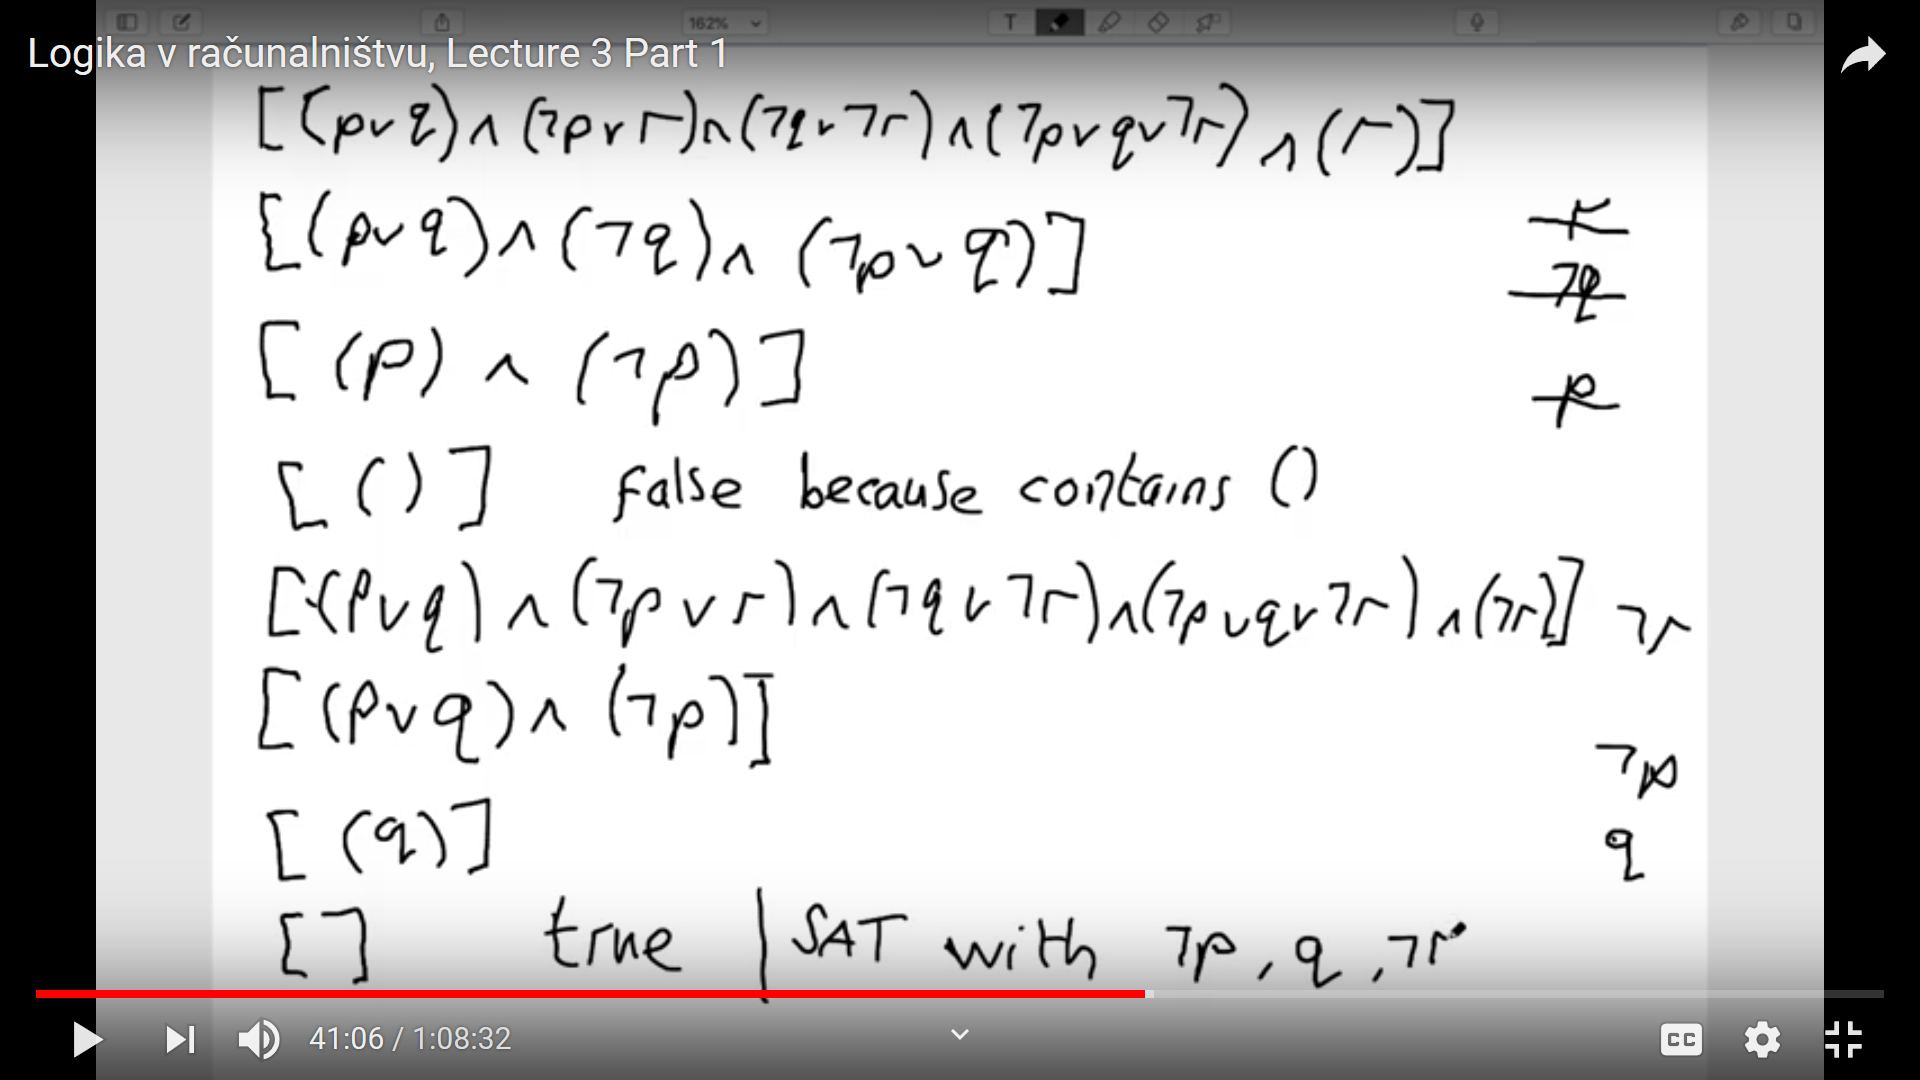 162%
T
Logika v računalništvu, Lecture 3 Part 1
[(p∨q)∧(¬p∨r)∧(¬q∨¬r)∧(¬p∨q∨¬r)∧(r)]
[(p∨q)∧(¬q)∧(¬p∨q)]
r
¬q
[(p)∧(¬p)]
p
[()] false because contains ()
[(p∨q)∧(¬p∨r)∧(¬q∨¬r)∧(¬p∨q∨¬r)∧(¬r)] ¬r
[(p∨q)∧(¬p)]
¬p
[(q)]
q
[] true | SAT with ¬p, q, ¬r
41:06 / 1:08:32
CC